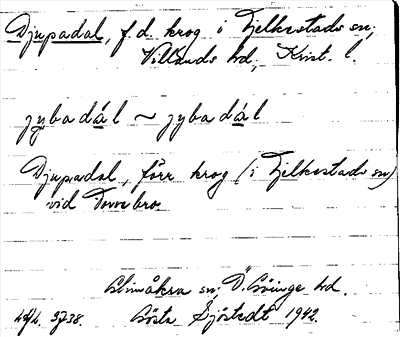 Djupadal, f.d. krog i Fjelkestads sn,
Villands hd, Krist. l.
jybadál ~ jybadál
Djupadal, förr krog (i Fjelkestads sn)
vid Torsebro
Almåkra sn, Ö. Göinge hd.
Gösta Sjöstedt 1942.